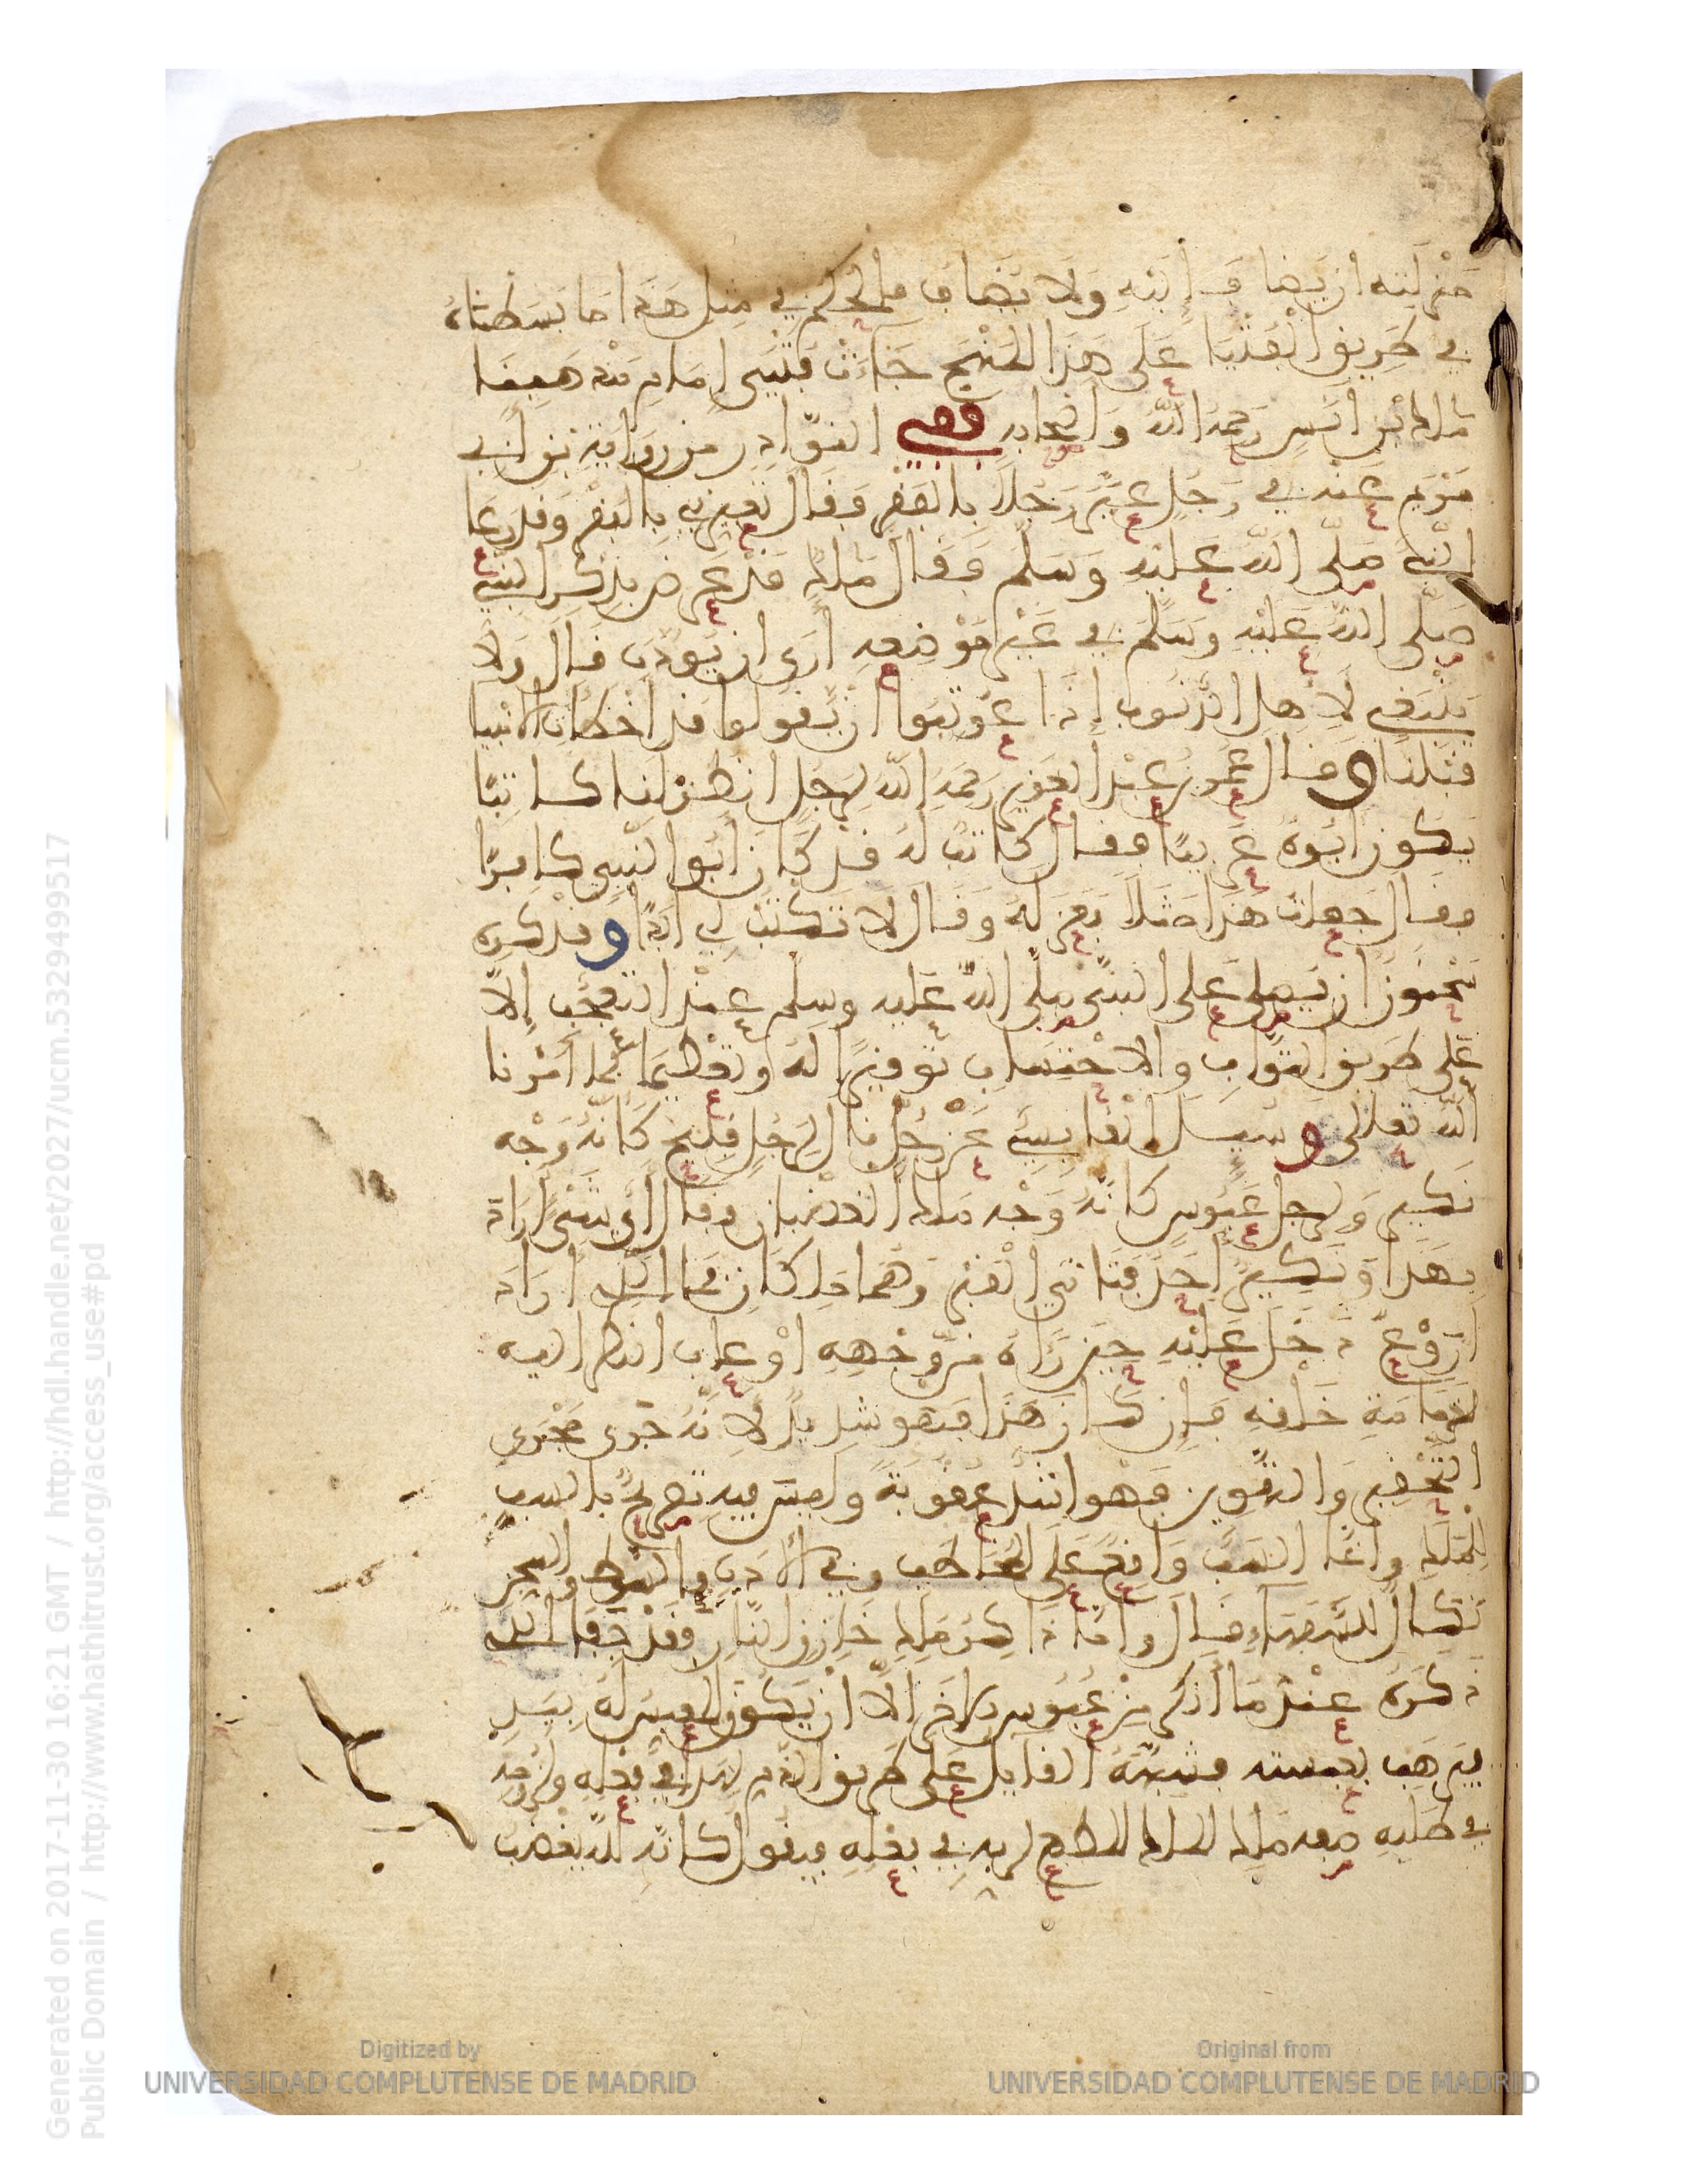 منزلته ان يضاف اليه ولا يضاف فالحكم في مثل هذا ما بسطناه
في طريق الفتيا على هذا المنهج جاءت فتيى امام مذهبنا
مالك بن انس رحمه الله واصحابه ففي النوادر من رواية بن ابي
مريم عنه في رجل عير رجلا بالفقر فقال تعيرني بالفقر وقد رعا
النبي صلى الله عليه وسلم فقال مالك قد عرض بذكر النبي
صلى الله عليه وسلم في غير موضعه ارى ان يودب قال ولا
ينبغي لاهل الذنوب اذا عوتبوا ان يقولوا قد اخطات الانبيا
قبلنا وقال عمر بن عبد العزيز رحمه الله لرجل انظر لنا كاتبا
يكون ابوه عربيا فقال كاتب له قد كان ابو النبي كافرا
فقال جعلت هذا مثلا فعزله وقال لا تكتب لي ابدا وقد كره
سحنون ان يصلى على النبي صلى الله عليه وسلم عند التعجب الا
على طريق الثواب والاحتساب توقيرا له وتعظيما كما امرنا
الله تعالى وسيل القابسي عن رجل قال لرجل قبيح كانه وجه
نكير ولرجل عبوس كانه وجه مالك الغضبان فقال اي شيء اراد
بهذا ونكير احد فتاني القبر وهما ملكان فما الذي اراد
اروع دخل عليه حين راه من وجهه او عاب النظر اليه
لدمامة خلقه فان كان هذا فهو شديد لانه جرى مجرى
التحقير والتهوين فهو اشد عقوبة وليس فيه تصريح بالسب
للملك وانما السب واقع على المخاطب وفي الادب بالسوط والسجن
نكال للسفهاء قال واما ذاكر مالك خازن النار فقد جفا الذي
ذكره عند ما انكر من عبوس الاخر الا ان يكون المعبس له بيد
فيرهب بعبسته فيشبهه القايل على طريق الذم لهذا في فعله ولزومه
في ظلمه صفه مالك الملك المطيع لربه في فعله فيقول كانه لله يغضب
Generated on 2017-11-30 16:21 GMT / http://hdl.handle.net/2027/ucm.5329499517
Public Domain / http://www.hathitrust.org/access_use#pd
Digitized by
UNIVERSIDAD COMPLUTENSE DE MADRID
Original from
UNIVERSIDAD COMPLUTENSE DE MADRID